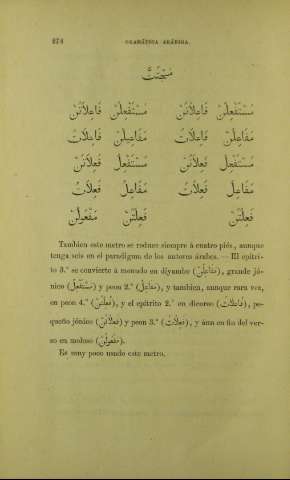 274 GRAMÁTICA ARÁBIGA.
مُسْتَفْعِلُنْ فَاعِلَاتُنْ مُسْتَفْعِلُنْ فَاعِلَاتُنْ
مَفَاعِلُنْ فَاعِلَاتُ مَفَاعِلُنْ فَاعِلَاتُ
مُسْتَفْعِلُ فَعِلَاتُنْ مُسْتَفْعِلُ فَعِلَاتُنْ
مَفَاعِلُ فَعِلَاتُ مَفَاعِلُ فَعِلَاتُ
فَعِلَتُنْ فَعِلَتُنْ مَفْعُولُنْ
Tambien este metro se reduce siempre á cuatro piés, aunque
tenga seis en el paradigma de los autores árabes. — El epítri-
to 3.º se convierte á menudo en diyambo (مَفَاعِلُنْ), grande jó-
nico (مُسْتَفْعِلُ) y peon 2.º (مَفَاعِلُ), y tambien, aunque rara vez,
en peon 4.º (فَعِلَتُنْ), y el epítrito 2.º en dicoreo (فَاعِلَاتُ), pe-
queño jónico (فَعِلَاتُنْ) y peon 3.º (فَعِلَاتُ), y áun en fin del ver-
so en moloso (مَفْعُولُنْ).
Es muy poco usado este metro.